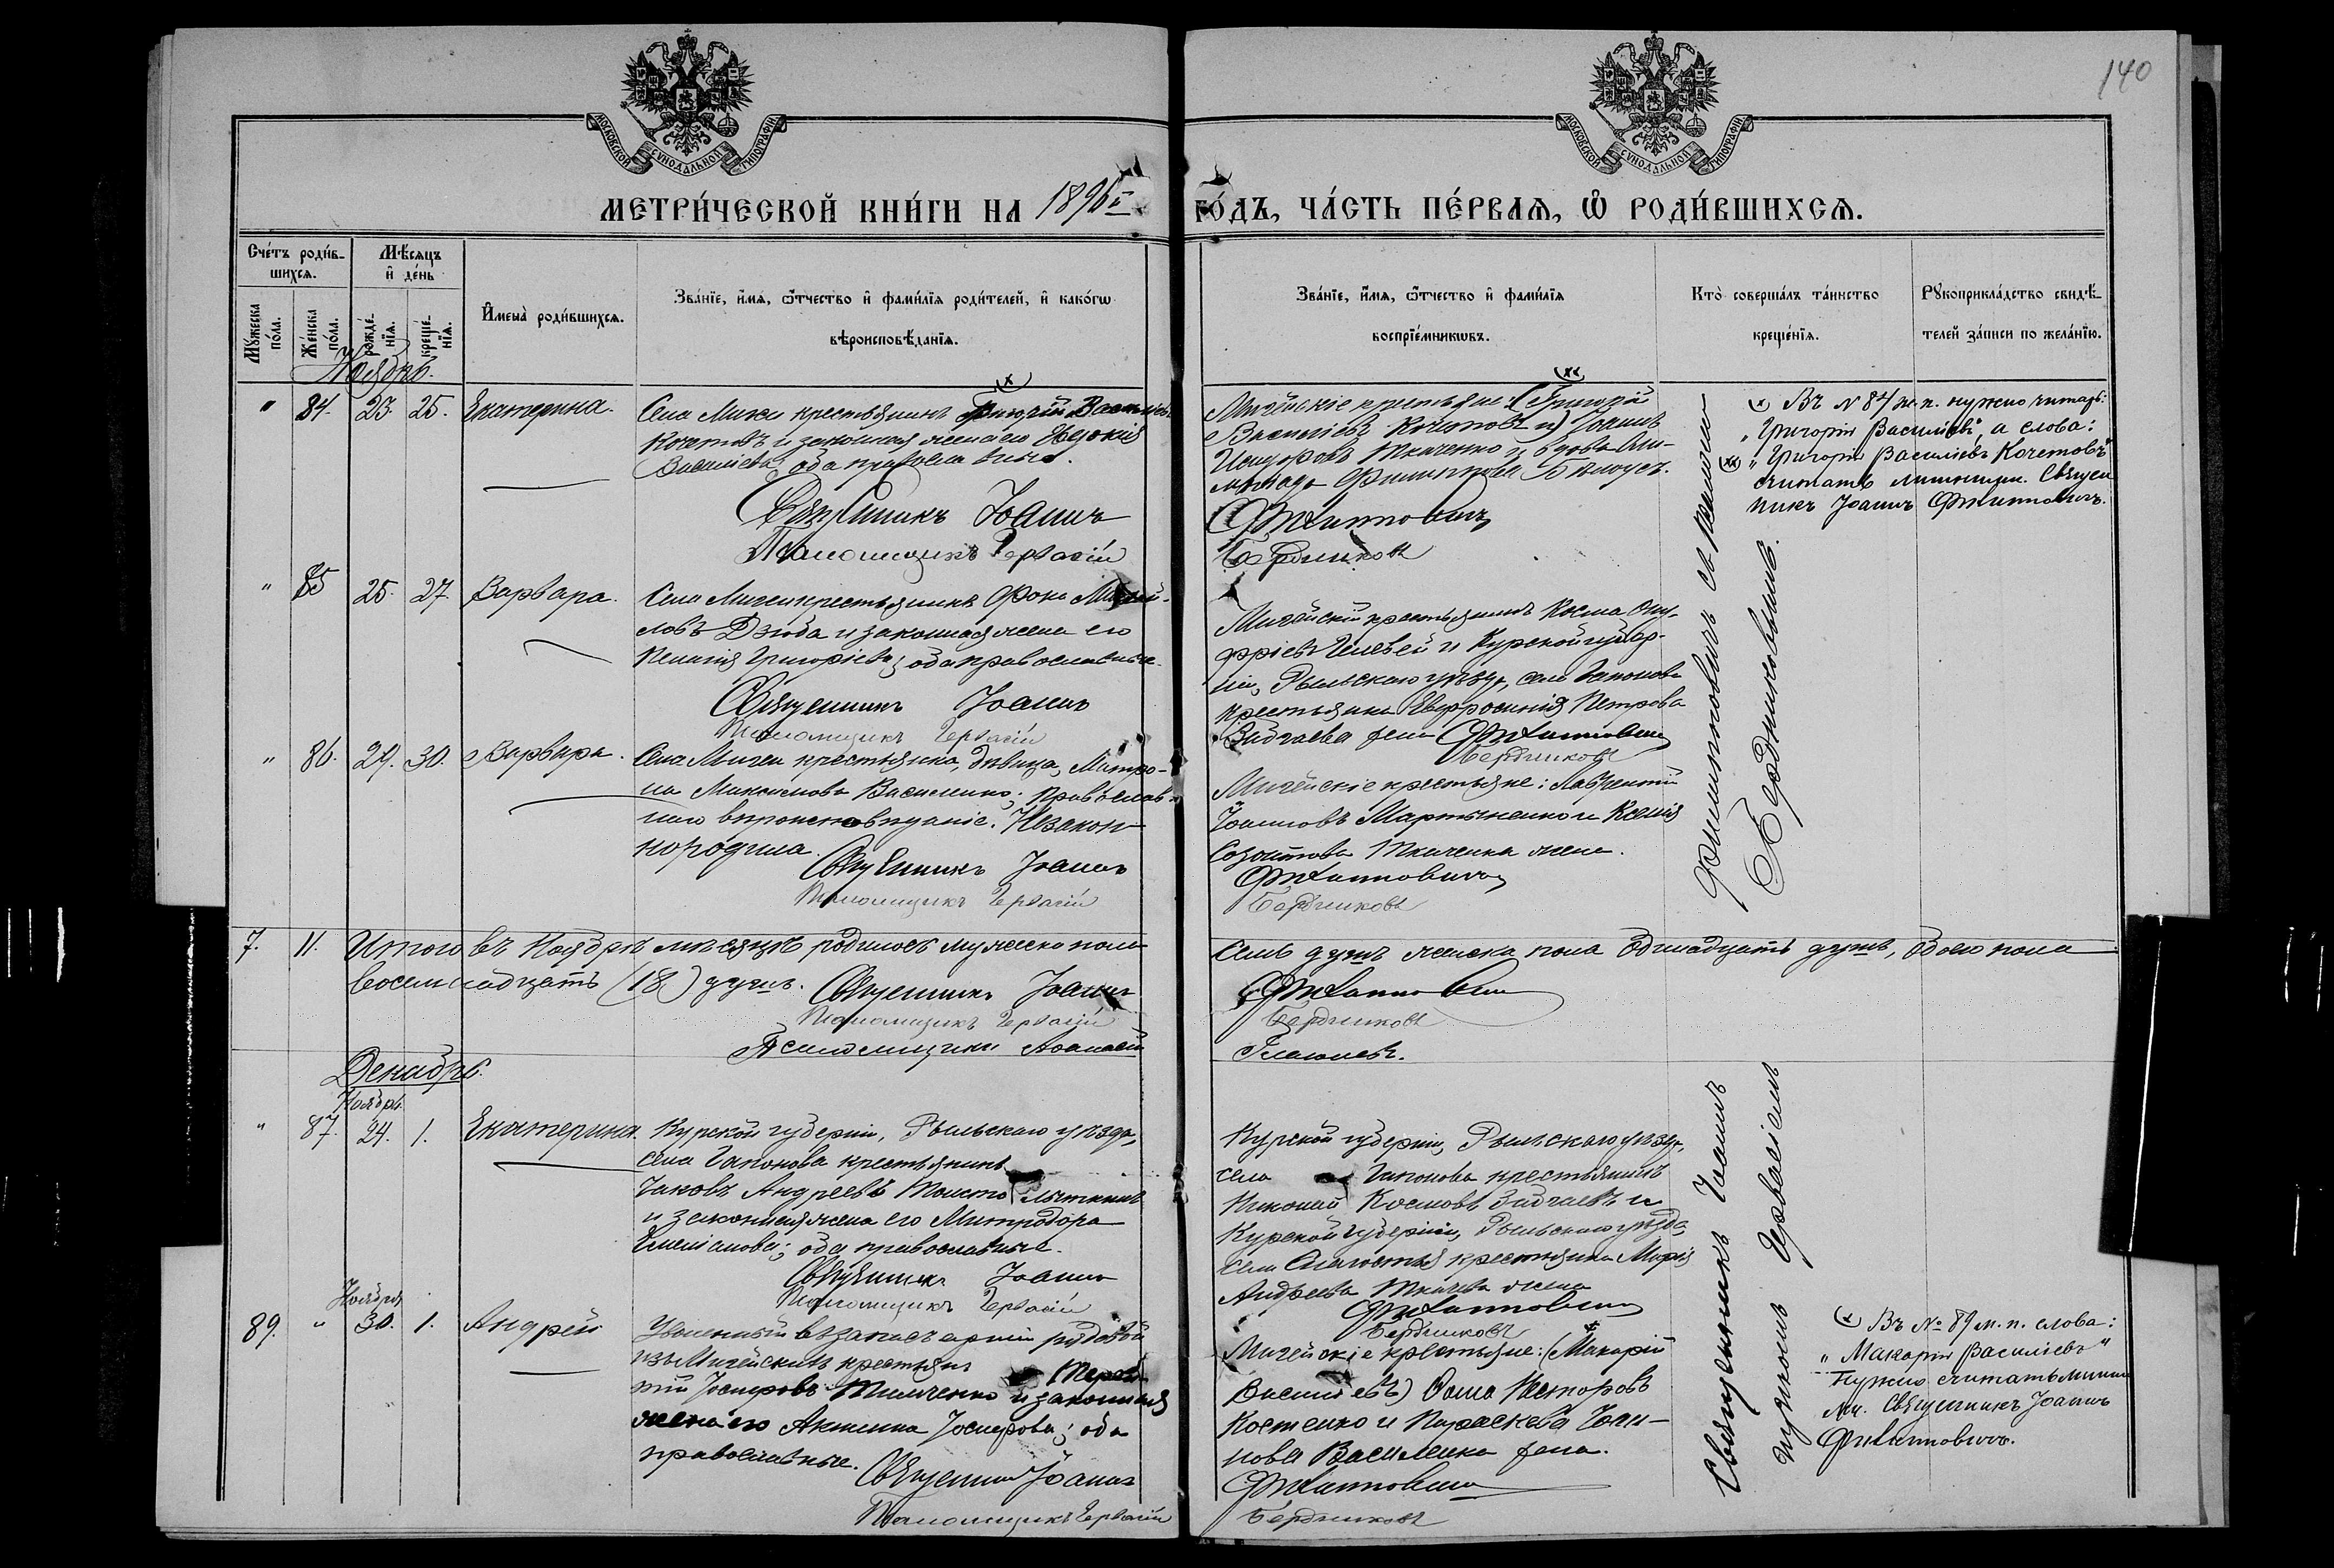 140
МОСКОВСКОЙ СѴНОДАЛЬНОЙ ТИПОГРАФІИ
МОСКОВСКОЙ СѴНОДАЛЬНОЙ ТИПОГРАФІИ
МЕТРИ́ЧЕСКОЙ КНИ́ГИ НА 1896й
ГО́ДЪ, ЧА́СТЬ ПЕ́РВАЯ, Ѽ РОДИ́ВШИХСЯ.
Сче́тъ роди́в-
шихся.
Мѣсяцъ
и́ де́нь
Мꙋжеска по́ла.
Же́нска по́ла.
рожде́-
нїя.
креще́-
нїя.
И҆мена̀ роди́вшихся.
Зва́нїе, и҆́мя, ѻ҆́тчество и҆ фами́лїя роди́телей, и҆ како́гѡ
вѣроисповѣ́данїя.
Зва́нїе, и҆́мя, ѻ҆́тчество и҆ фами́лїя
воспрїе́мникѡвъ.
Кто̀ соверша́лъ та́инство
креще́нїя.
Рꙋкоприкла́дство свидѣ́-
телей за́писи по жела́нїю.
Ноябрь.
" 84. 23. 25. Екатерина.
Села Мигеи крестьянинъ Григорій Васильевъ
Кочетовъ и законная жена его Евдокія
Васильева, оба православные.
Священникъ Іоаннъ
Псаломщикъ Гервасій
Мигейскіе крестьяне (Григорій
Васильевъ Кочетовъ и) Іоаннъ
Исидоровъ Ткаченко и вдова
Филиппова Білоусъ.
Филипповичъ
Бердниковъ
(х) Въ № 84 ж.п. нужно читать:
"Григорій Васильевъ", а слова:
(хх) "Григорій Васильевъ Кочетовъ"
считать лишними. Священ-
никъ Іоаннъ Филипповичъ.
" 85 25. 27. Варвара.
Села Мигеи крестьянинъ Фока Михай-
ловъ Дзюба и законная жена его
Пелагія Григорьева, оба православные.
Священникъ Іоаннъ
Псаломщикъ Гервасій
Мигейскій крестьянинъ Косма Ону-
фріевъ и Курской губер-
ніи, Рыльскаго уѣзда, села Гапонова
крестьянка Евфросинія Петрова
жена Филипповичъ
Бердниковъ
" 86. 29. 30. Варвара.
Села Мигеи крестьянка, дѣвица, Матро-
на Максимова Василенко; православ-
наго вѣроисповѣданія. Незакон-
норождена.
Священникъ Іоаннъ
Псаломщикъ Гервасій
Мигейскіе крестьяне: Лаврентій
Іоанновъ Мартыненко и Ксенія
Созонтова Ткаченка жена.
Филипповичъ
Бердниковъ
Филипповичъ съ псаломщ
Бердниковымъ.
7. 11. Итого въ Ноябрѣ мѣсяцѣ родилось мужеска пола
семь душъ женска пола одинадцать душъ, обоего пола
восемнадцать (18) душъ.
Священникъ Іоаннъ
Филипповичъ
Псаломщикъ Гервасій
Бердниковъ
Псаломщикъ Аѳанасій
Декабрь.
Ноября
" 87. 24. 1. Екатерина.
Курской губерніи, Рыльскаго уѣзда,
села Гапонова крестьянинъ
Іаковъ Андреевъ
и законная жена его Митродора
Емеліанова; оба православные.
Священникъ Іоаннъ
Псаломщикъ Гервасій
Курской губерніи, Рыльскаго уѣзда,
села Гапонова крестьянинъ
Николай Космовъ и
Курской губерніи, Рыльскаго уѣзда,
села крестьянка Марія
Андреева Ткачева жена
Филипповичъ
Бердниковъ
Ноября
89. " 30. 1. Андрей
Уволенный въ запасъ арміи рядовой
изъ Мигейскихъ крестьянъ Терен-
тій Іосифовъ Тимченко и законная
жена его Акилина Іосифова; оба
православные.
Священникъ Іоаннъ
Псаломщикъ Гервасій
Мигейскіе крестьяне: (Макарій
Васильевъ) Савва Несторовъ
Костенко и Параскева Іоан-
нова Василенка жена.
Филипповичъ
Бердниковъ
Священникъ Іоаннъ
Гервасіемъ
(х) Въ № 89 м.п. слова:
"Макарій Васильевъ"
нужно считать лишни-
ми. Священникъ Іоаннъ
Филипповичъ.